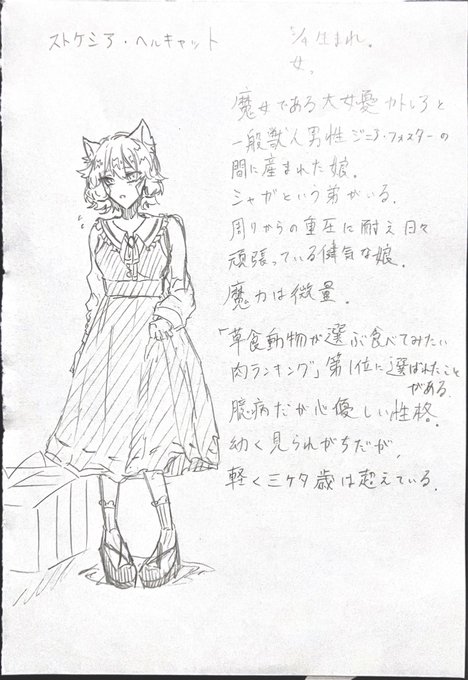 ストケシア・ヘルキャット
生まれ。
女。
魔女である大女優カトレアと
一般獣人男性ジニア・フォスターの
間に産まれた娘。
シャガという弟がいる。
周りからの重圧に耐え日々
頑張っている健気な娘。
魔力は微量。
「草食動物が選ぶ食べてみたい
肉ランキング」第1位に選ばれたこと
がある。
臆病だが心優しい性格。
幼く見られがちだが、
軽く三ケタ歳は超えている。